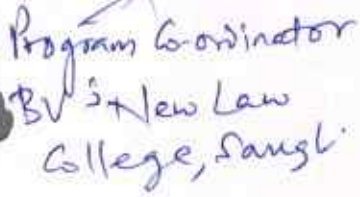 Program Co-ordinator
BV's New Law
College, Sangli.